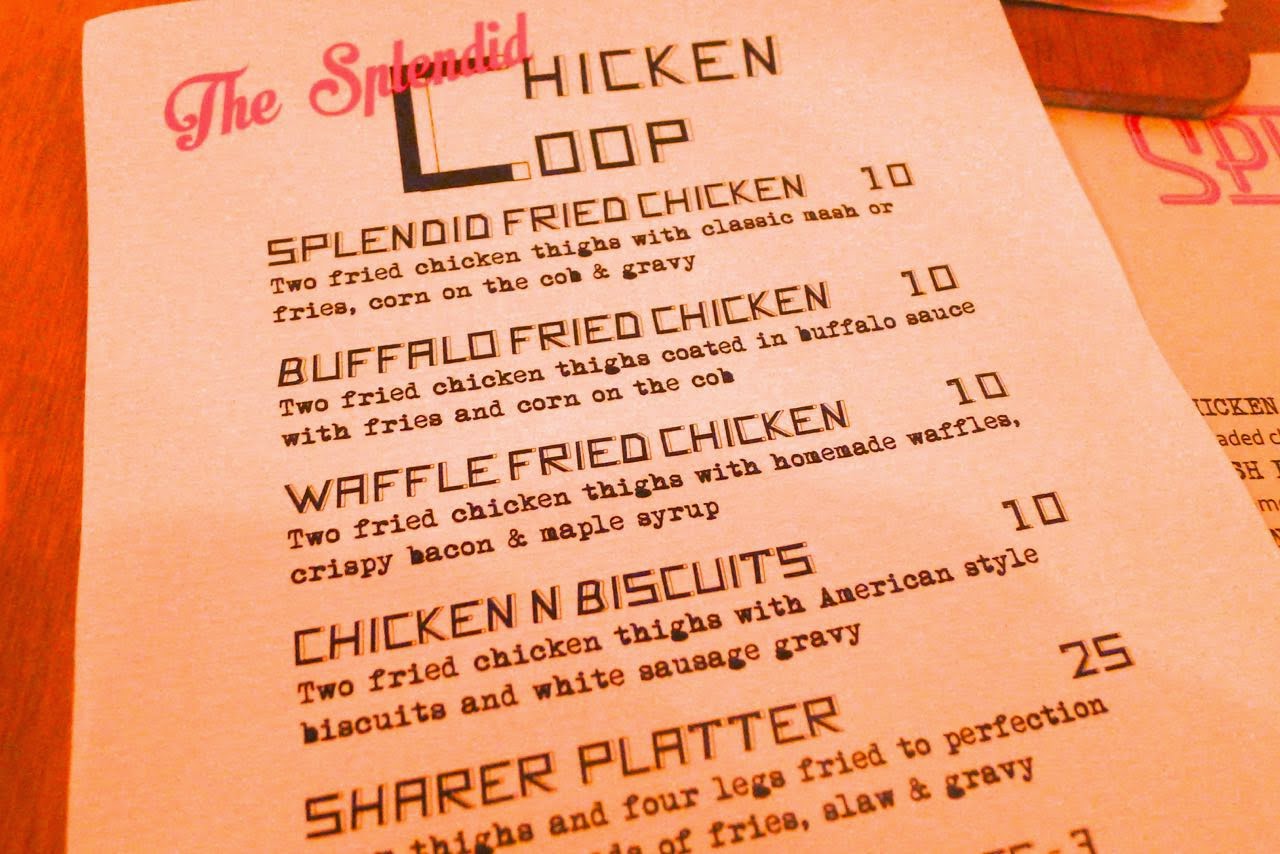 The Splendid
CHICKEN
LOOP
SPLENDID FRIED CHICKEN 10
Two fried chicken thighs with classic mash or
fries, corn on the cob & gravy
BUFFALO FRIED CHICKEN 10
Two fried chicken thighs coated in buffalo sauce
with fries and corn on the cob
WAFFLE FRIED CHICKEN 10
Two fried chicken thighs with homemade waffles,
crispy bacon & maple syrup
CHICKEN N BISCUITS 10
Two fried chicken thighs with American style
biscuits and white sausage gravy
SHARER PLATTER 25
thighs and four legs fried to perfection
of fries, slaw & gravy